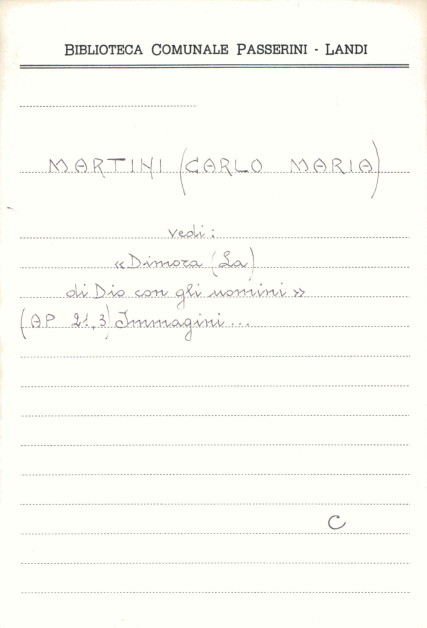 BIBLIOTECA COMUNALE PASSERINI - LANDI
MARTINI (CARLO MARIA)
vedi:
«Dimora (La)
di Dio con gli uomini»
(AP 21,3) Immagini...
C